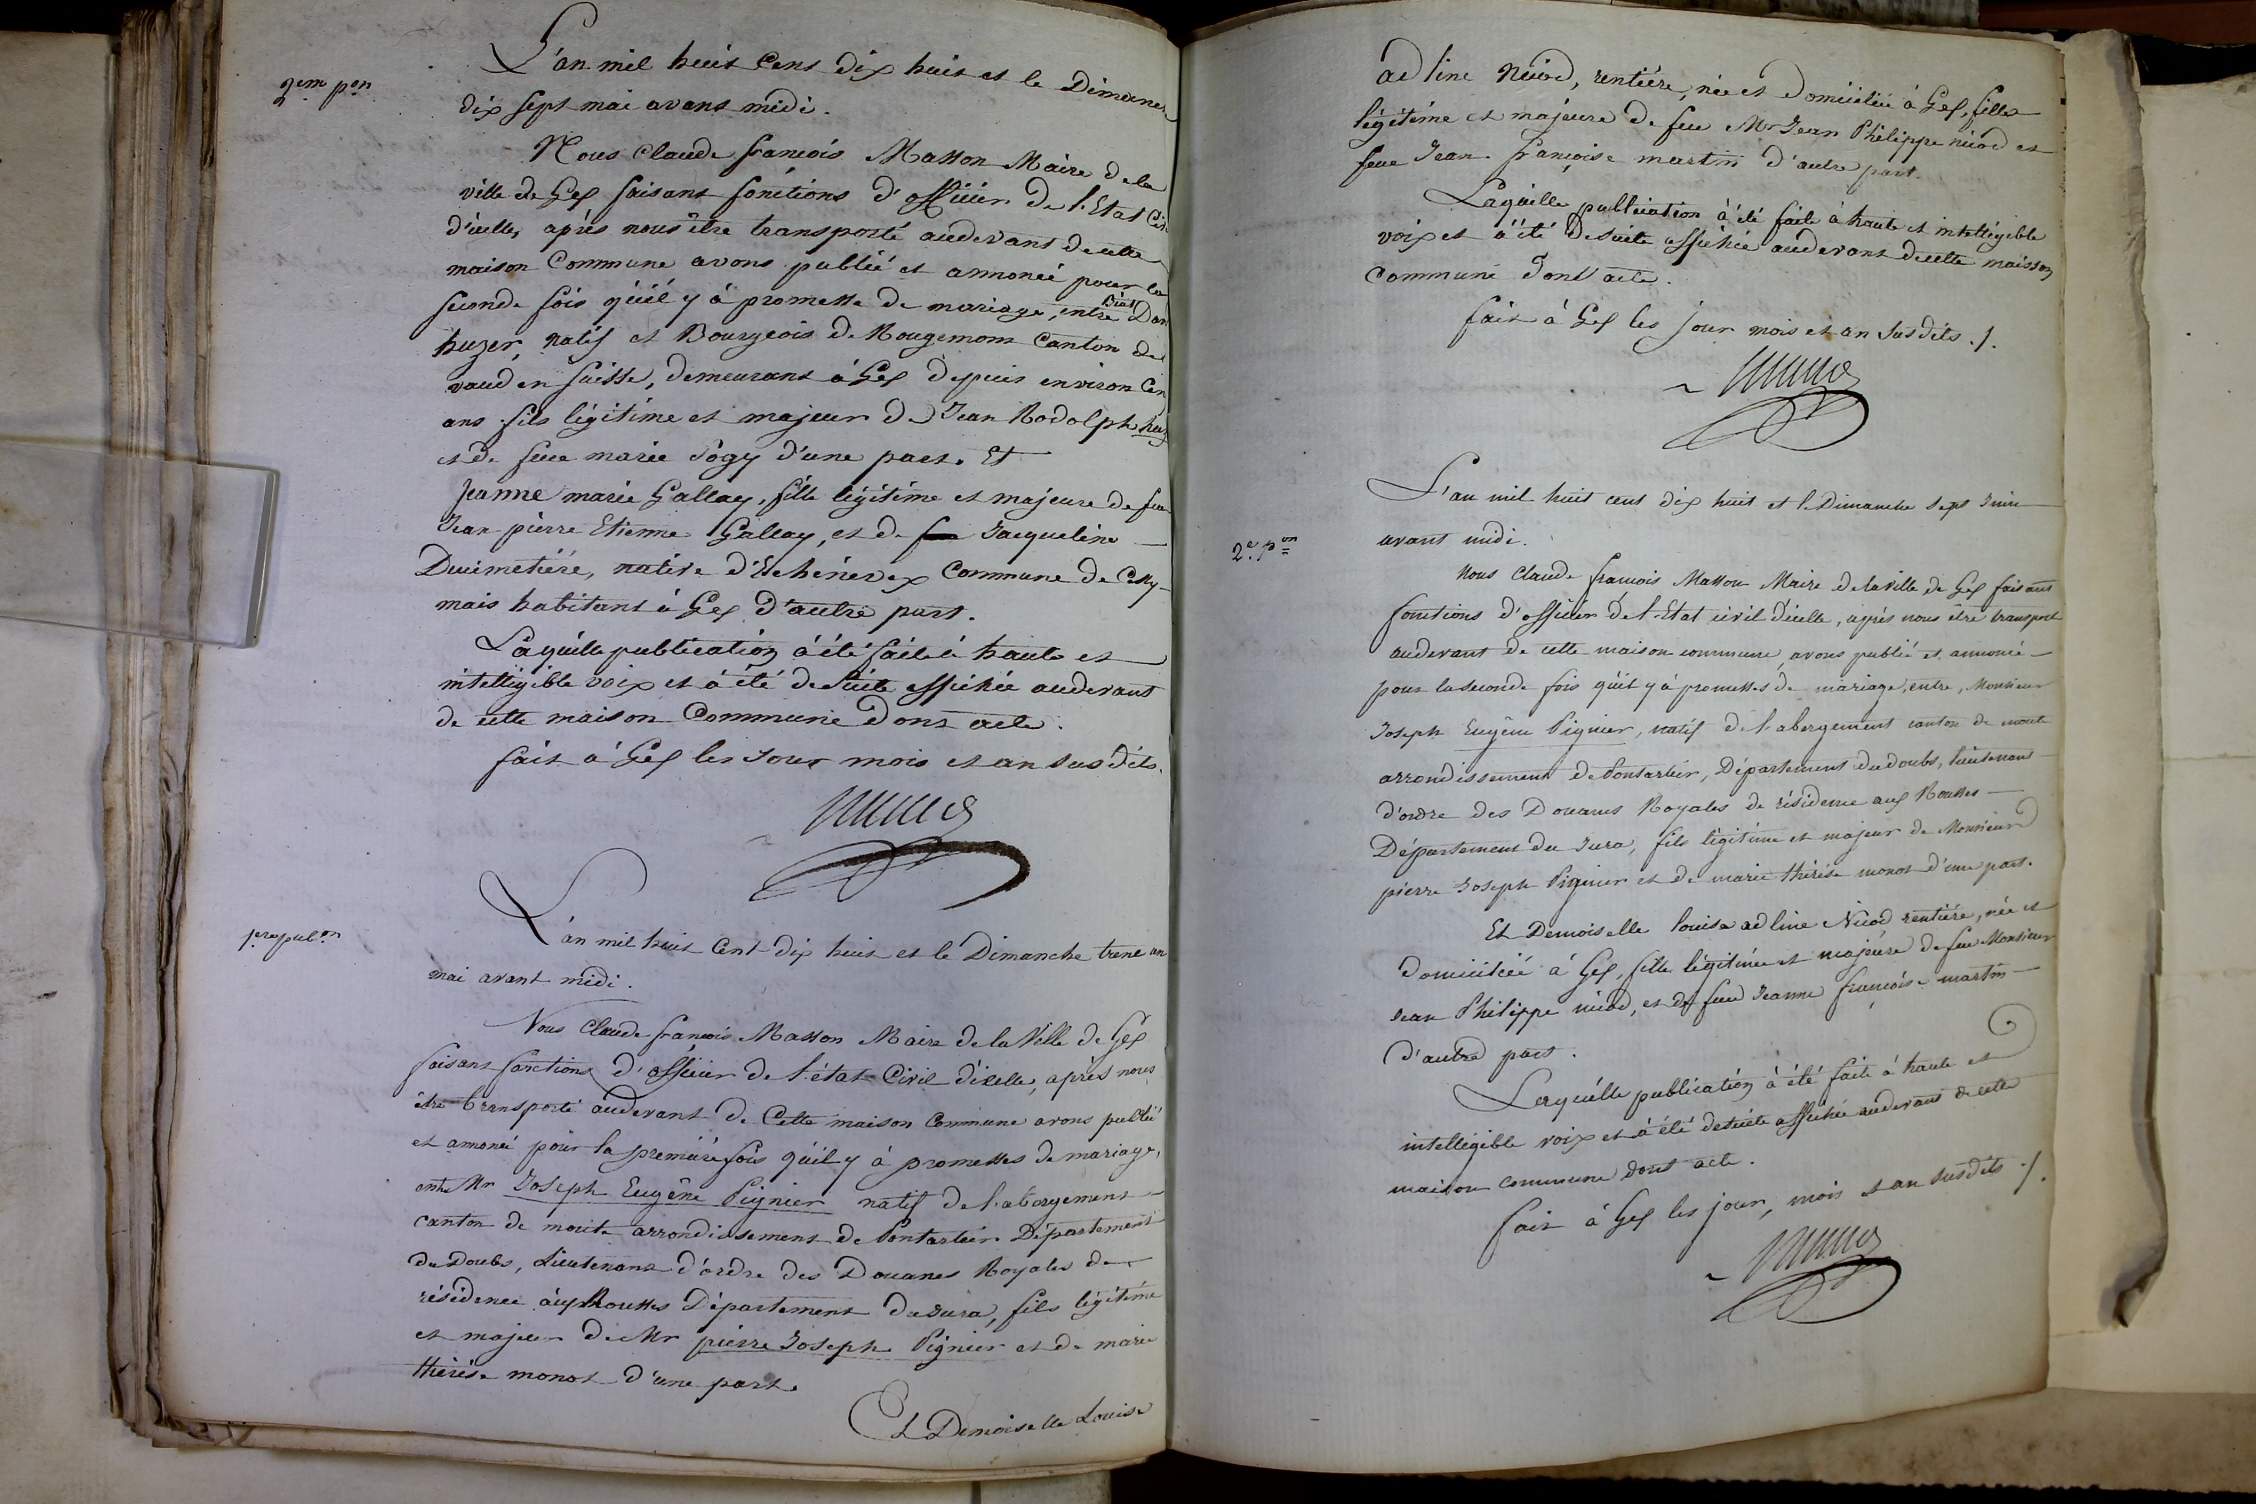 2em pon
L'an mil huit Cens dix huit et le Dimanche
dix sept mai avant midi.
Nous Claude francois Masson Maire de la
ville de Gex faisant fonctions d'officier de l'Etat Civ
d'icelle, après nous être transporté audevant de cette
maison Commune avons publié et annoncé pour la
seconde fois qu'il y à promesse de mariage, entre
huzer, natif et Bourgeois de Rougemont Canton de
vaud en suisse, demeurant à Gex depuis environ
ans fils légitime et majeur de Jean Rodolph huz
et de feue marie Sogy d'une part. Et
Jeanne marie Gallay, fille légitime et majeure de feu
Jean pierre Etienne Gallay, et de Jacqueline
Ducimetière, native d'Echenevex Commune de Cessy
mais habitant à Gex d'autre part.
Laquelle publication à été faite à haute et
intelligible voix et à été de suite affichée audevant
de cette maison Commune dont acte.
fait à Gex les Jour mois et an susdits.
1re pulon
L'an mil huit Cent dix huit et le Dimanche trene un
mai avant midi.
Nous Claude francois Masson Maire de la Ville de Gex
faisant fonctions d'officier de l'état Civil d'icelle, après nous
être transporté audevant de Cette maison Commune avons publié
et annoncé pour la premiére fois qu'il y à promesses de mariage,
entre Mr Joseph Eugêne Pignier natif de l'abergement
canton de mout arrondissement de Pontarlier Département
du Doubs, Lieutenant d'ordre des Douanes Royales de
résidence aux Rousses Département du Jura, fils légitime
et majeur de Mr pierre Joseph Pignier et de marie
thérése monot d'une part.
Et Demoiselle Louise
ad line Nicod, rentiére, née et domiciliée à Gex, fille
légitime et majeure de feu Mr Jean Philippe nicod et
feue Jean françoise martin d'autre part.
Laquelle publication à été faite à haute et intelligible
voix et à été desuite affichée audevant decette maison
Commune dont acte.
fait à Gex les jour mois et an susdits ./.
2e pon
L'an mil huit cent dix huit et le Dimanche sept Juin
avant midi.
Nous Claude françois Masson Maire dela ville de Gex faisant
fonctions d'officier de l'Etat civil d'icelle, après nous être transport
audevant de cette maison commune, avons publié et annoncé
pour la seconde fois qu'il y à promesses de mariage, entre, Monsieur
Joseph Eugêne Pignier, natif de l'abergement canton de moute
arrondissement de Pontarlier, Département du doubs, lieutenant
d'ordre des Douanes Royales de résidence aux Rousses
Département du Jura, fils légitime et majeur de Monsieur
pierre Joseph Pignier et de marie thérése monot d'une part.
Et Demoiselle louise ad line Nicod rentiére, née et
domiciliée à Gex, fille légitime et majeure de feu Monsieur
Jean Philippe nicod, et de feue Jeanne françoise martin
d'autre part.
Laquelle publication à été faite à haute et
intelligible voix et à été desuite affichée audevant de cette
maison commune dont acte.
fait à Gex les jour, mois et an susdits ./.